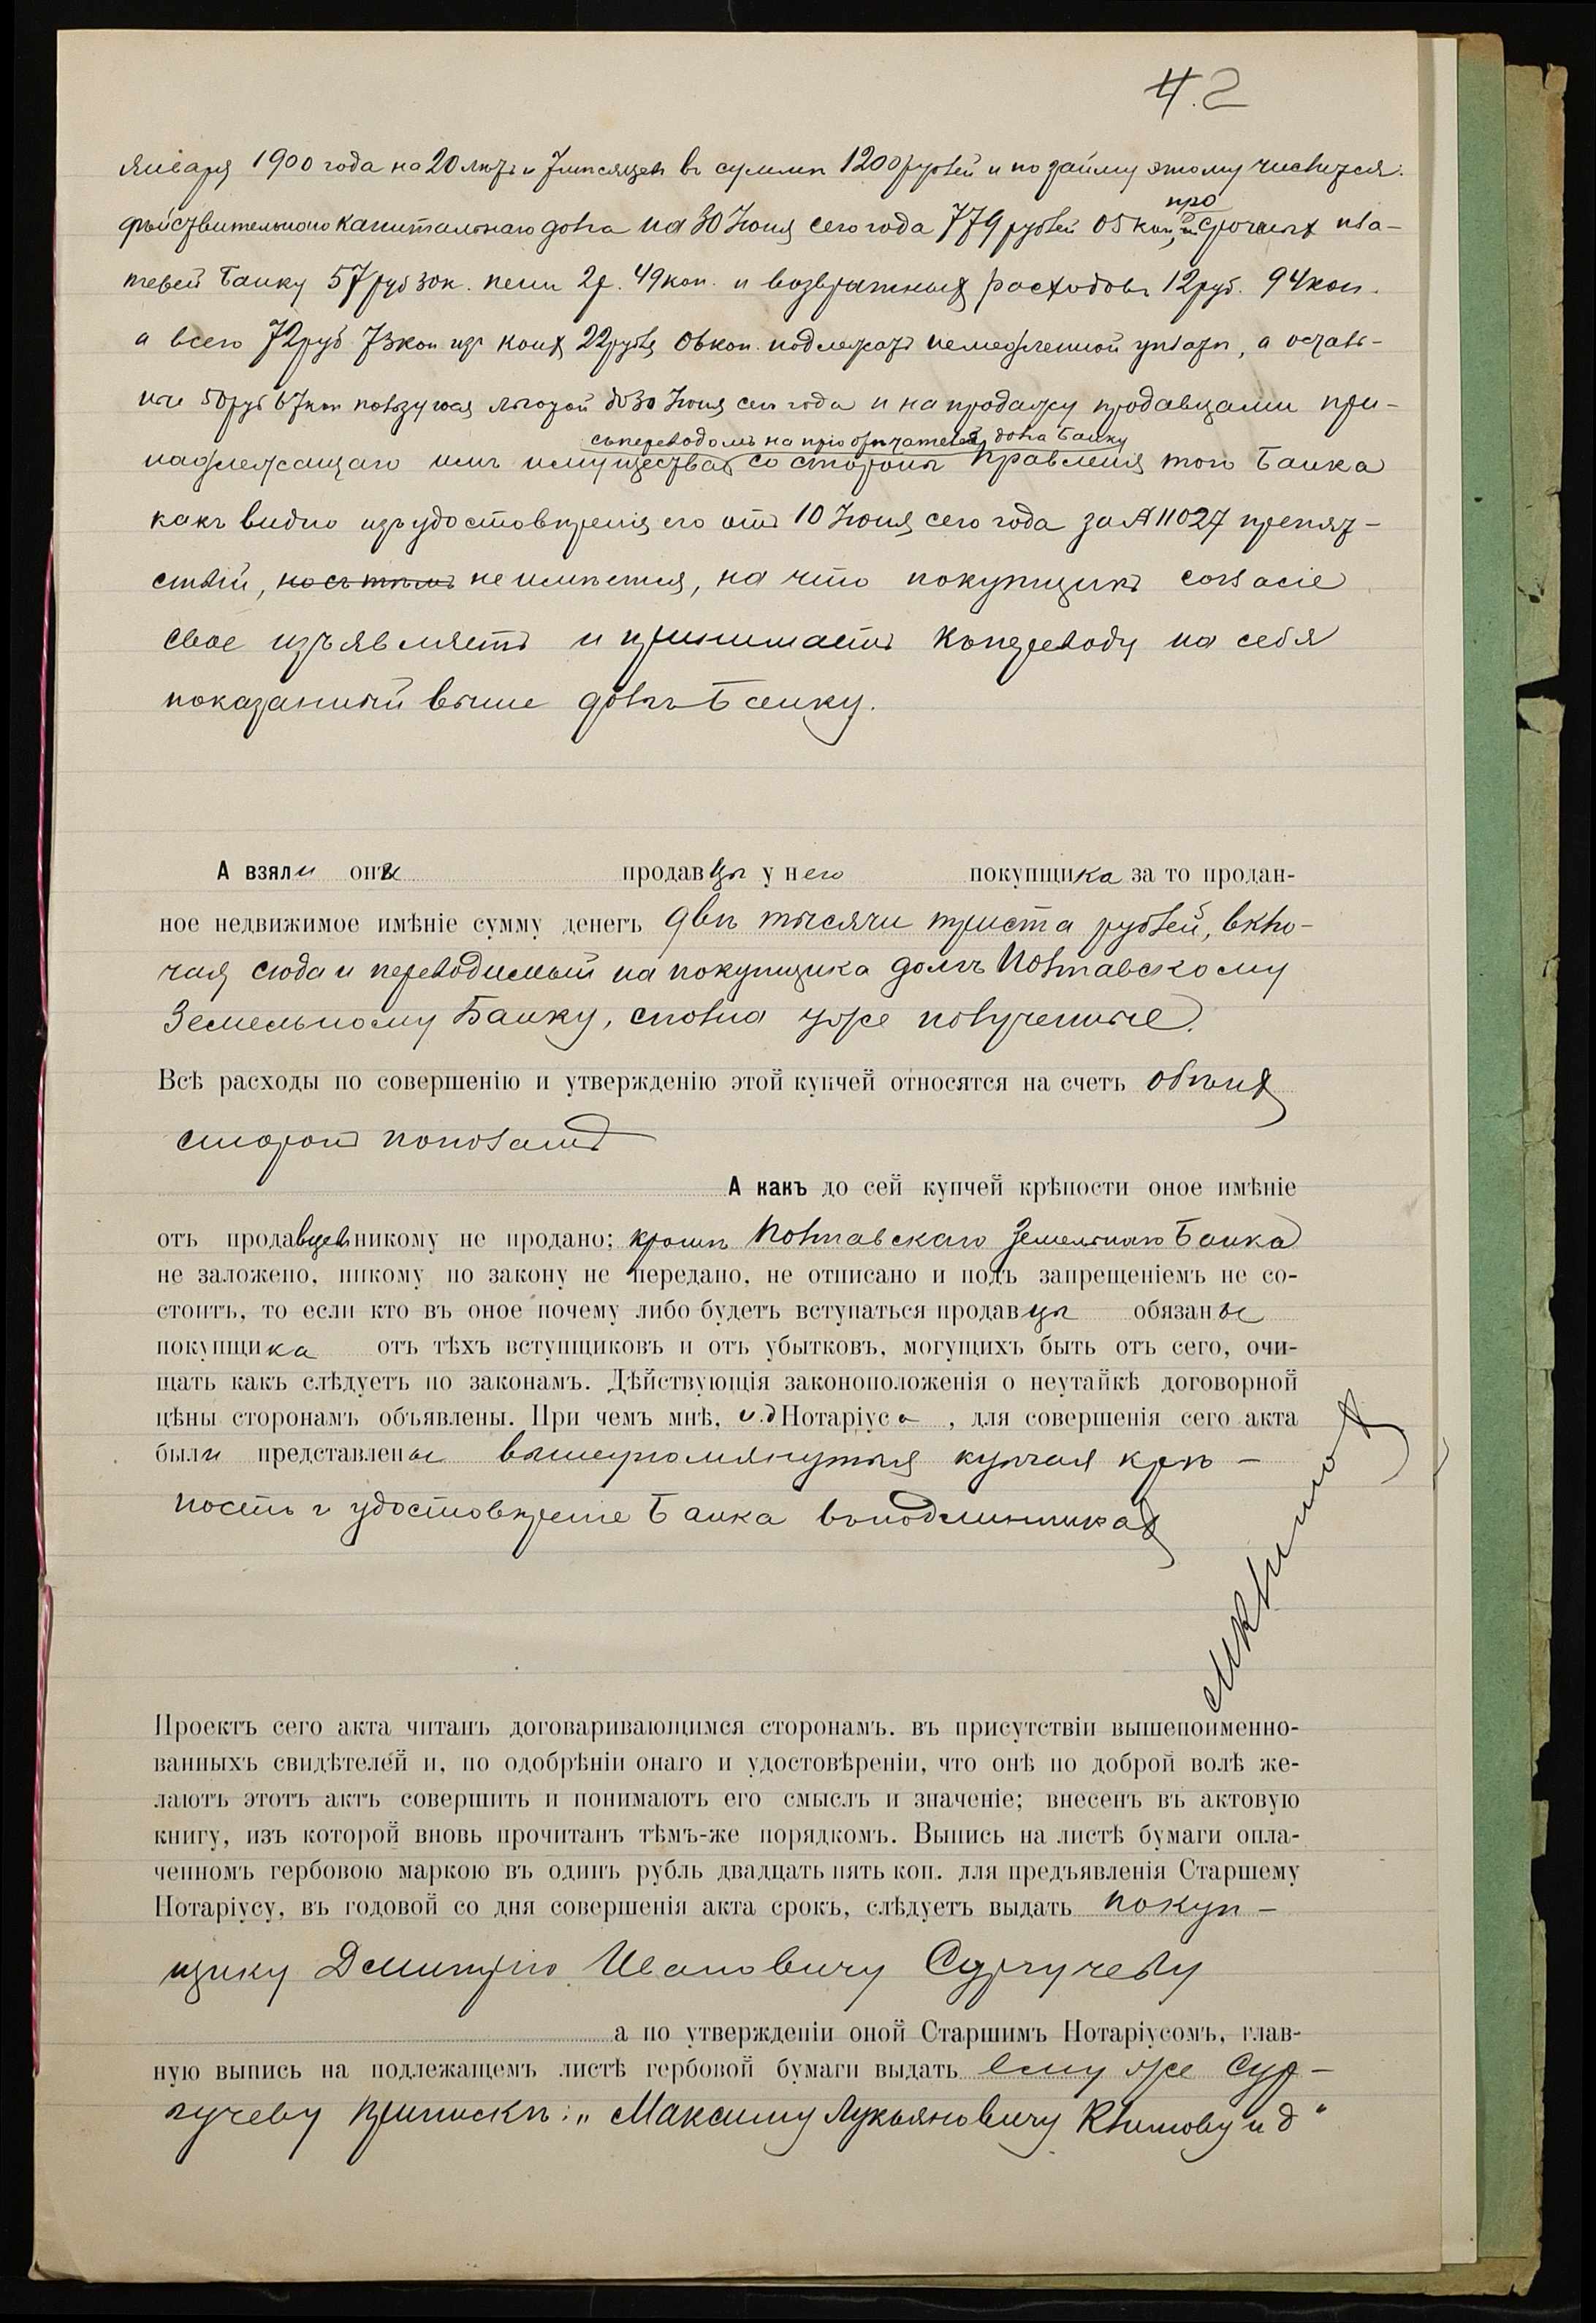 42
Января 1900 года на 20 лѣтъ и 7 мѣсяцев въ суммѣ 1200 рублей и по займу этому числится:
дѣйствительного капитальнаго долга на 30 Июня сего года 779 рублей 05 коп., просрочных пла-
тежей Банку 57 руб 30 к. пени 2 р. 49 коп. и возвратных расходовъ 12 руб. 94 коп.
а всего 72 руб 73 коп изъ коих 22 рубля 06 коп. подлежатъ немедленной уплатѣ, а осталь-
ные 50 руб 67 коп пользуются льготой до 30 Июня сего года и на продажу продавцами при-
съ переводомъ на приобрѣтателя долга Банку
надлежащаго имъ имущества со стороны Правления того Банка
какъ видно изъ удостовѣрения его отъ 10 Июня сего года за № 11027 препят-
ствий, но съ тѣмъ не имѣется, на что покупщикъ согласие
свое изъявляетъ и принимаетъ къ переводу на себя
показанный выше долгъ Банку.
А взяли они продавцы у него покупщика за то продан-
ное недвижимое имѣніе сумму денегъ двѣ тысячи триста рублей, вклю-
чая сюда и переводимый на покупщика долгъ Полтавскому
Земельному Банку, сполна уже полученные.
Всѣ расходы по совершенію и утвержденію этой купчей относятся на счетъ обѣих
сторонъ пополамъ
А какъ до сей купчей крѣпости оное имѣніе
отъ продавцевъ никому не продано; кромѣ Полтавскаго Земельнаго Банка
не заложено, никому по закону не передано, не отписано и подъ запрещеніемъ не со-
стоитъ, то если кто въ оное почему либо будетъ вступаться продавцы обязаны
покупщика отъ тѣхъ вступщиковъ и отъ убытковъ, могущихъ быть отъ сего, очи-
щать какъ слѣдуетъ по законамъ. Дѣйствующія законоположенія о неутайкѣ договорной
цѣны сторонамъ объявлены. При чемъ мнѣ, и. д Нотаріуса, для совершенія сего акта
были представлены вышеупомянутыя купчая крѣ-
пость и удостовѣрение Банка въ подлинниках
Проектъ сего акта читанъ договаривающимся сторонамъ. въ присутствіи вышепоименно-
ванныхъ свидѣтелей и, по одобрѣніи онаго и удостовѣреніи, что онѣ по доброй волѣ же-
лаютъ этотъ актъ совершить и понимаютъ его смыслъ и значеніе; внесенъ въ актовую
книгу, изъ которой вновь прочитанъ тѣмъ-же порядкомъ. Выпись на листѣ бумаги опла-
ченномъ гербовою маркою въ одинъ рубль двадцать пять коп. для предъявленія Старшему
Нотаріусу, въ годовой со дня совершенія акта срокъ, слѣдуетъ выдать покуп-
щику Дмитрію Ивановичу Сургучеву
а по утвержденіи оной Старшимъ Нотаріусомъ, глав-
ную выпись на подлежащемъ листѣ гербовой бумаги выдать ему же Сур-
гучеву Припискѣ: „Максиму Лукьяновичу Климову и д“